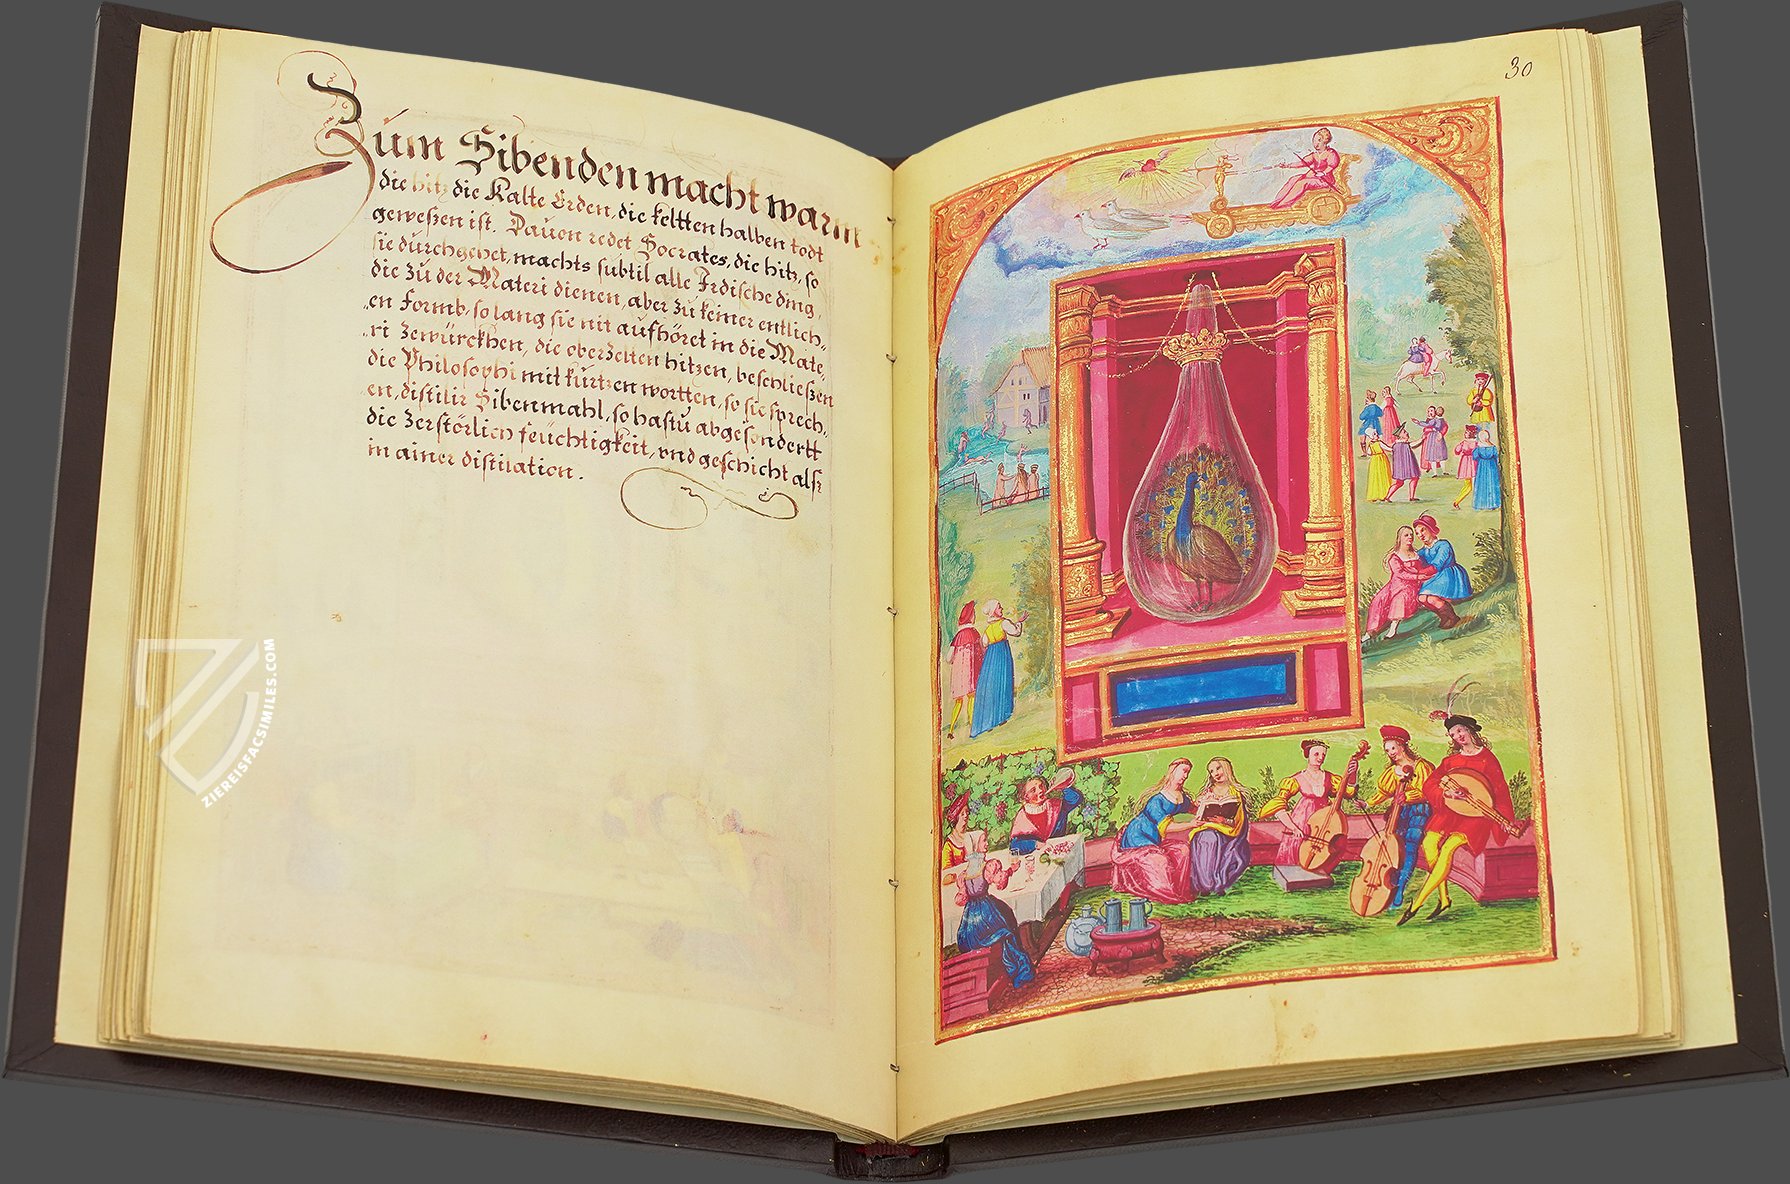 Zum Sibenden macht warm
die hitz die Kalte Erden, die keltten halben todt
geweßen ist. Dauon redet Socrates, die hitz, so
sie durchgehet, machts subtil alle Irdische ding,
die zu der Materi dienen, aber zu keiner entlich„
„en Formb, so lang sie nit aufhöret in die Mate„
„ri zewürckhen, die oberzelten hitzen, beschließen
die Philosophi mit kurtzen wortten, so sie sprech„
en, distilir Sibenmahl, so hastu abgesondertt
die zerstörlich feüchtigkeit, vnd geschicht alß
in ainer distilation.
30
ZIEREISFACSIMILES.COM